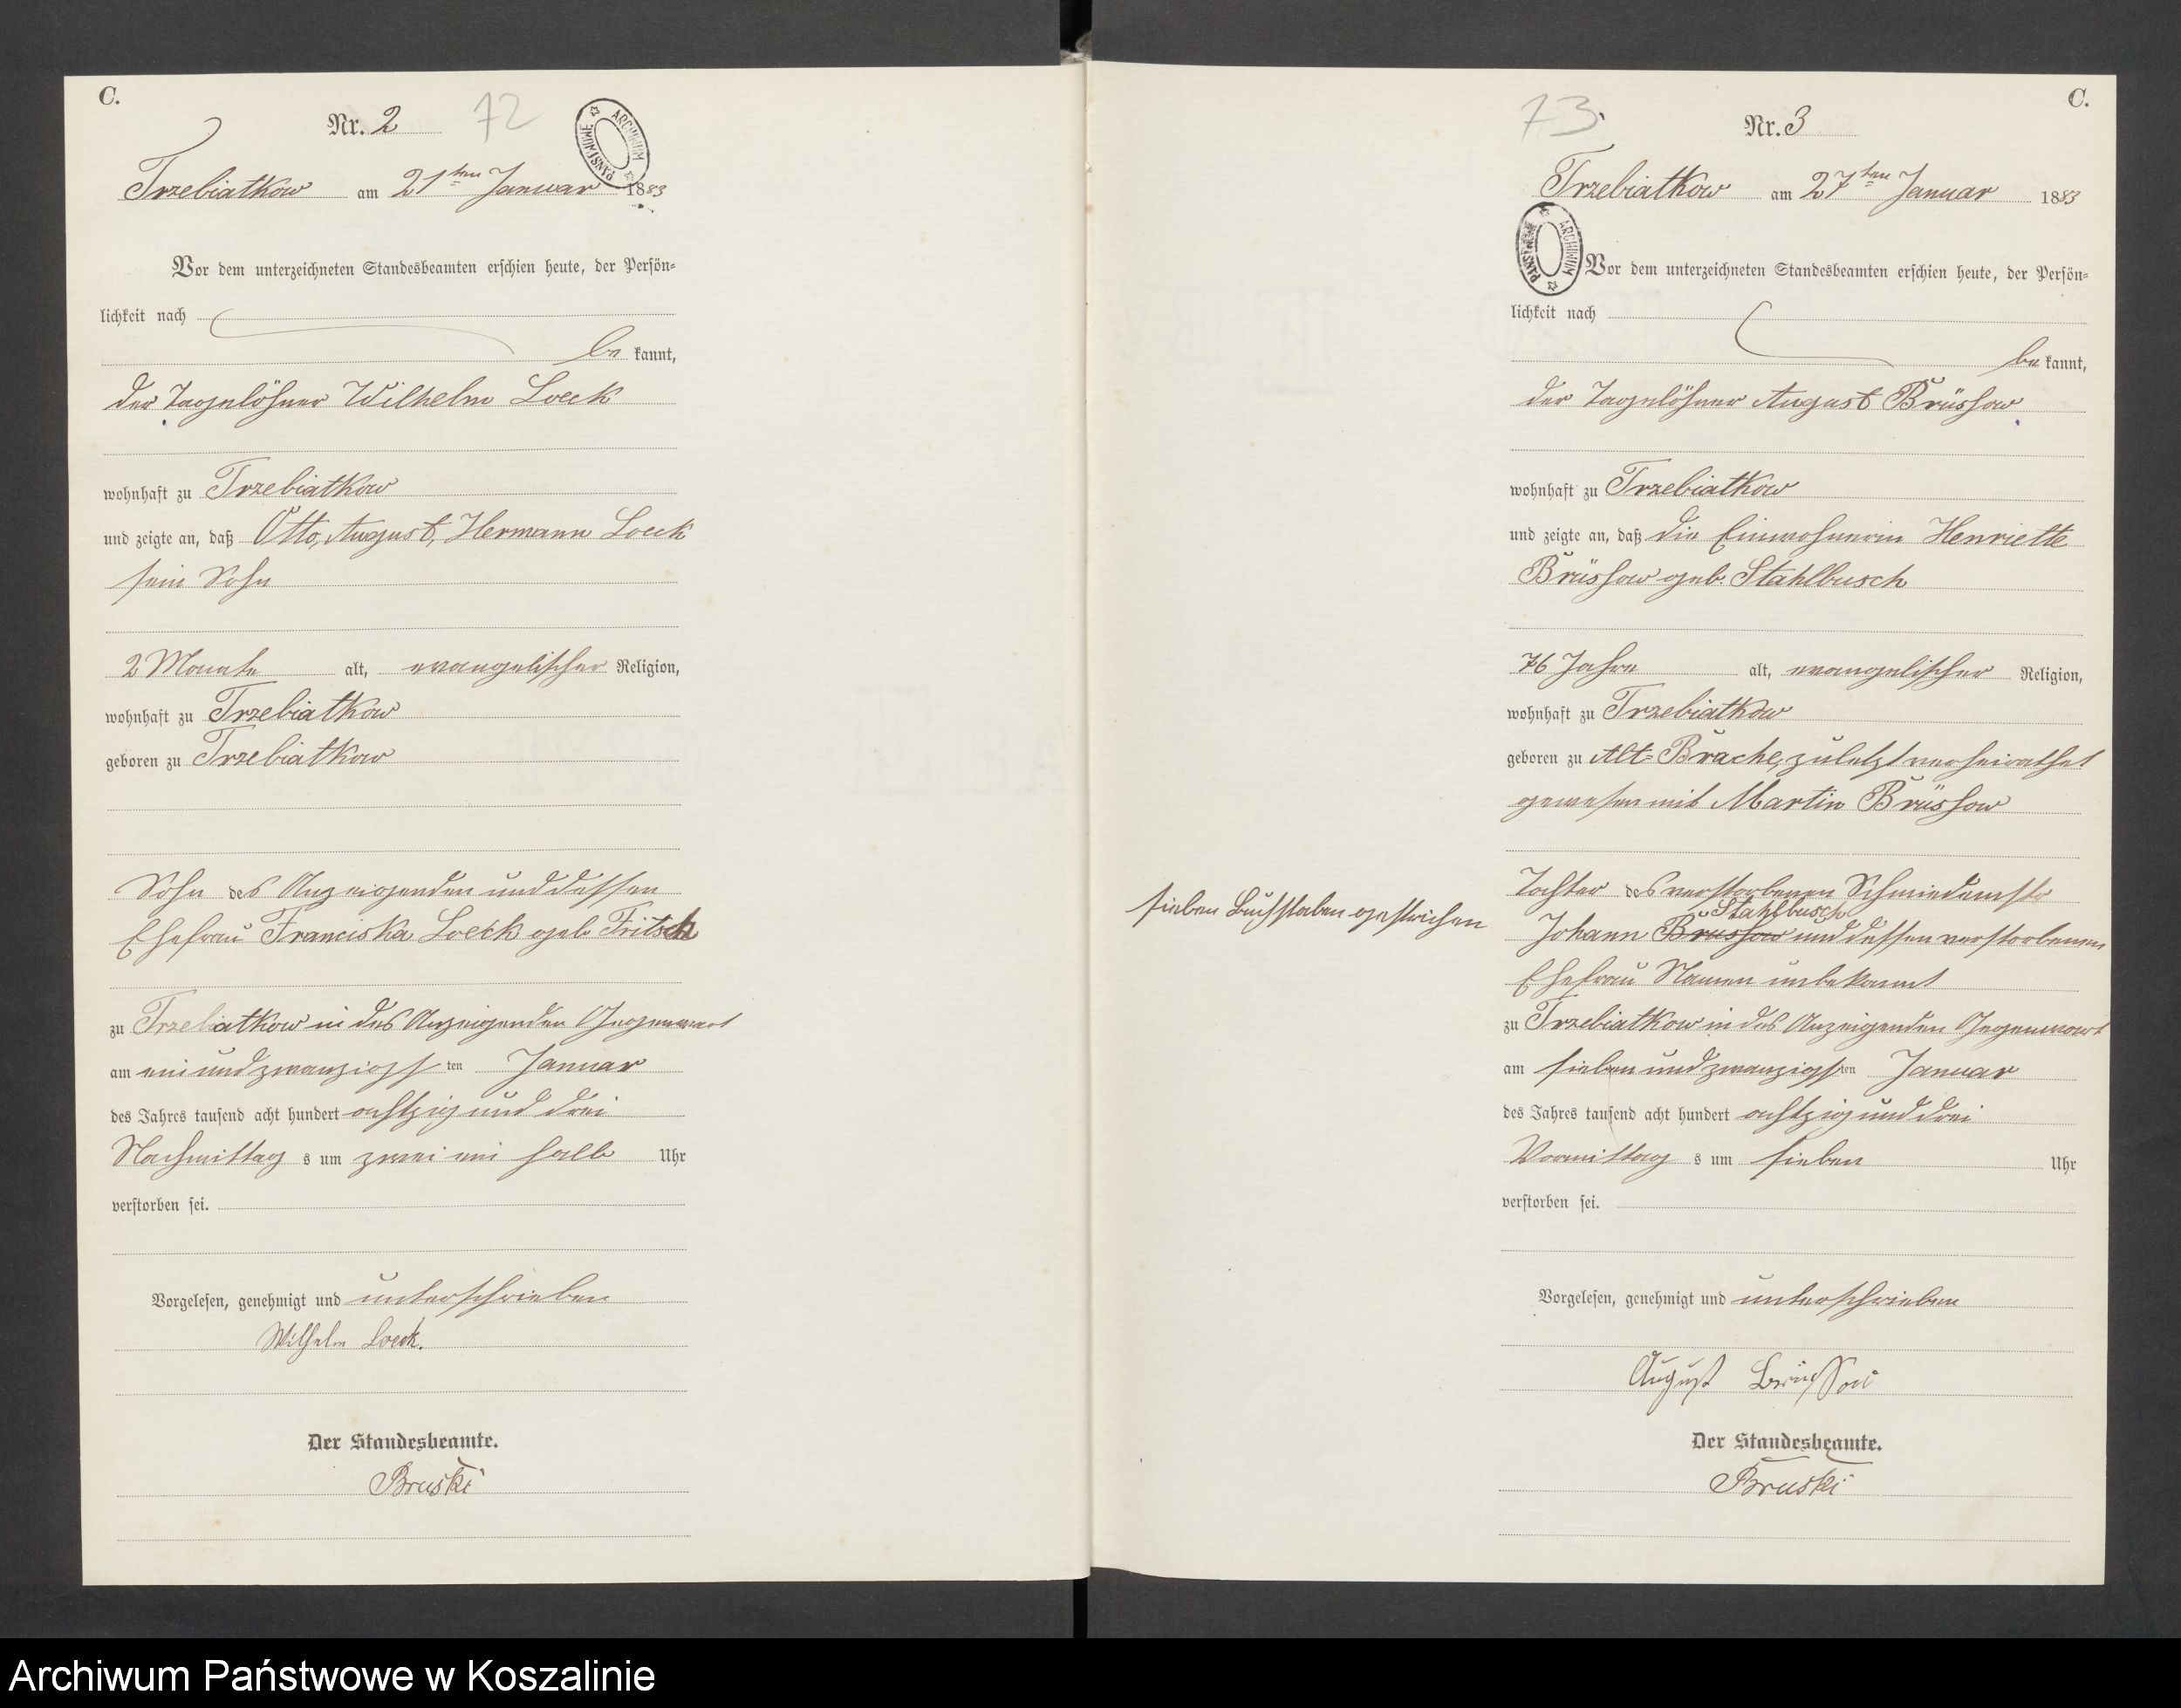 C.
Nr. 2
72
ARCHIWUM PAŃSTWOWE
Trzebiatkow am 21ten Januar 1883
Vor dem unterzeichneten Standesbeamten erschien heute, der Persön-
lichkeit nach
be kannt,
der Tagelöhner Wilhelm Loeck
wohnhaft zu Trzebiatkow
und zeigte an, daß Otto, August, Hermann Loeck
sein Sohn
2 Monate alt, evangelischer Religion,
wohnhaft zu Trzebiatkow
geboren zu Trzebiatkow
Sohn des Anzeigenden und dessen
Ehefrau Franciska Loeck geb. Fritsch
zu Trzebiatkow in des Anzeigenden Gegenwart
am ein und zwanzigsten Januar
des Jahres tausend acht hundert achtzig und drei
Nachmittags um zwei ein halb Uhr
verstorben sei.
Vorgelesen, genehmigt und unterschrieben
Wilhelm Loeck.
Der Standesbeamte.
Bruski
C.
73.
Nr. 3
Trzebiatkow am 27ten Januar 1883
ARCHIWUM PAŃSTWOWE
Vor dem unterzeichneten Standesbeamten erschien heute, der Persön-
lichkeit nach
be kannt,
der Tagelöhner August Brüssow
wohnhaft zu Trzebiatkow
und zeigte an, daß die Einwohnerin Henriette
Brüssow geb. Stahlbusch
76 Jahre alt, evangelischer Religion,
wohnhaft zu Trzebiatkow
geboren zu Alt-Brache, zuletzt verheirathet
gewesen mit Martin Brüssow
Tochter des verstorbenen Schmiedemstr
Stahlbusch
sieben Buchstaben gestrichen
Johann Brüssow und dessen verstorbenen
Ehefrau Namen unbekannt
zu Trzebiatkow in des Anzeigenden Gegenwart
am sieben und zwanzigsten Januar
des Jahres tausend acht hundert achtzig und drei
Vormittags um sieben Uhr
verstorben sei.
Vorgelesen, genehmigt und unterschrieben
August Brüssow
Der Standesbeamte.
Bruski
Archiwum Państwowe w Koszalinie